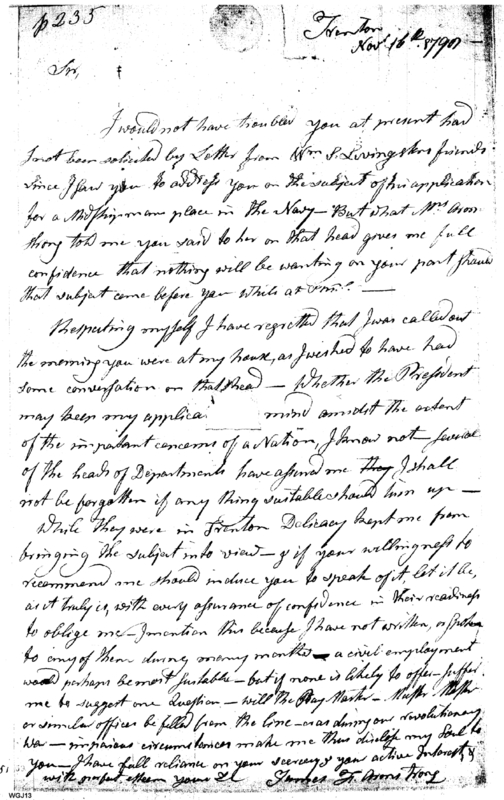 p 235
Trenton
Novr. 16th. 1790
Sir,
I would not have troubled you at present had
I not been solicited by Letter from Wm S. Livingstons friends
since I saw you to address you on the subject of his application
for a Midshipmans place in the Navy — But what Mrs Arm
strong told me you said to her on that head gives me full
confidence that nothing will be wanting on your part should
that subject come before you while at
Respecting myself I have regretted that I was called out
the morning you were at my house, as I wished to have had
some conversation on that head — Whether the President
may keep my applica mind amidst the extent
of the important concerns of a Nation, I know not — several
of the heads of Departments have assured me they I shall
not be forgotten if any thing suitable should turn up —
While they were in Trenton Delicacy kept me from
bringing the subject into view — & if your willingness to
recommend me should induce you to speak of it, let it be,
as it truly is, with every assurance of confidence in their readiness
to oblige me — I mention this because I have not written, or spoken
to any of them during many months — a civil employment
would perhaps be most suitable — but if none is likely to offer — suffer
me to suggest one Question — will the Pay Master — Muster Master
or similar offices be filled from the line — as during our revolutionary
war — circumstances make me thus disclose my Soul to
you — I have full reliance on your secrecy & your active Interest &
with perfect esteem yours &c James F. Armstrong
51
WGJ13